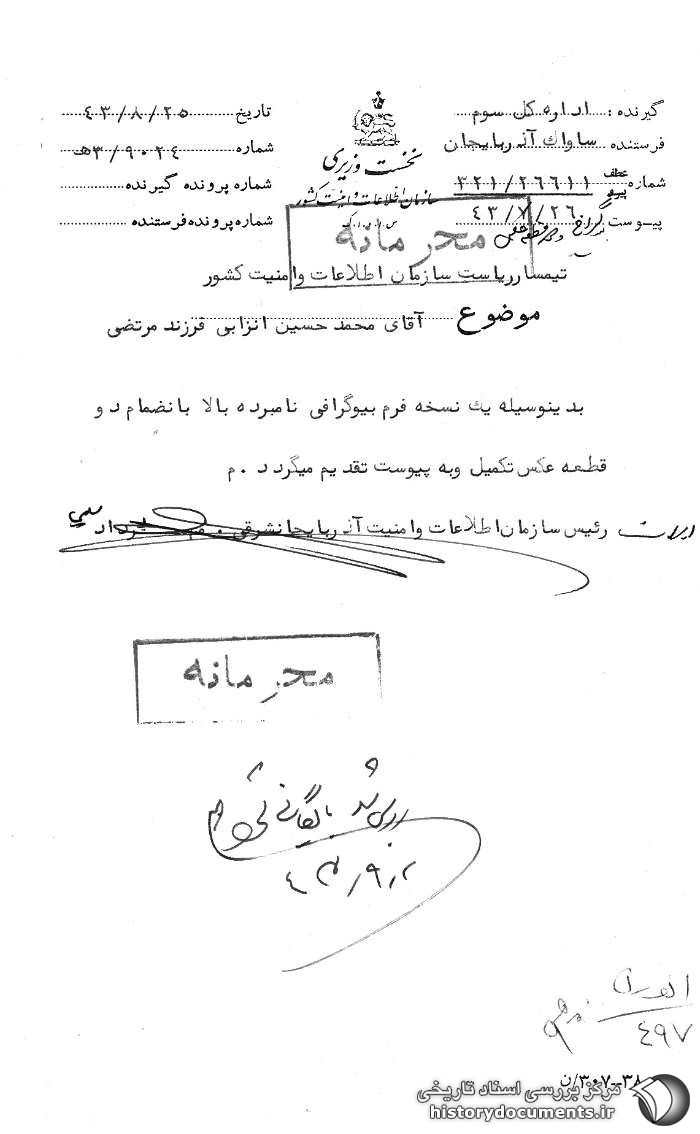 گیرنده : اداره کل سوم
فرستنده ساواك آذربایجان
شماره عطف پیرو ۳۲۱/۲۶۶۱۱
۴۳/۷/۲۶
پیوست
نخست وزیری
سازمان اطلاعات و امنیت کشور
س.ا.و.ا.ک
تاریخ ۴۳/۸/۲۵
شماره ۳/۹۰۲۴/هـ
شماره پرونده گیرنده
شماره پرونده فرستنده
محرمانه
تیمسار ریاست سازمان اطلاعات وامنیت کشور
موضوع آقای محمد حسین انزابی فرزند مرتضی
بدینوسیله یك نسخه فرم بیوگرافی نامبرده بالا بانضمام دو
قطعه عکس تکمیل وبه پیوست تقدیم میگردد .م
رئیس سازمان اطلاعات وامنیت آذربایجانشرقی .
محرمانه
بایگانی شود
۴۳/۹/۲
۴۹۷
۳۸-۳۰۷/ن
مرکز بررسی اسناد تاریخی
historydocuments.ir